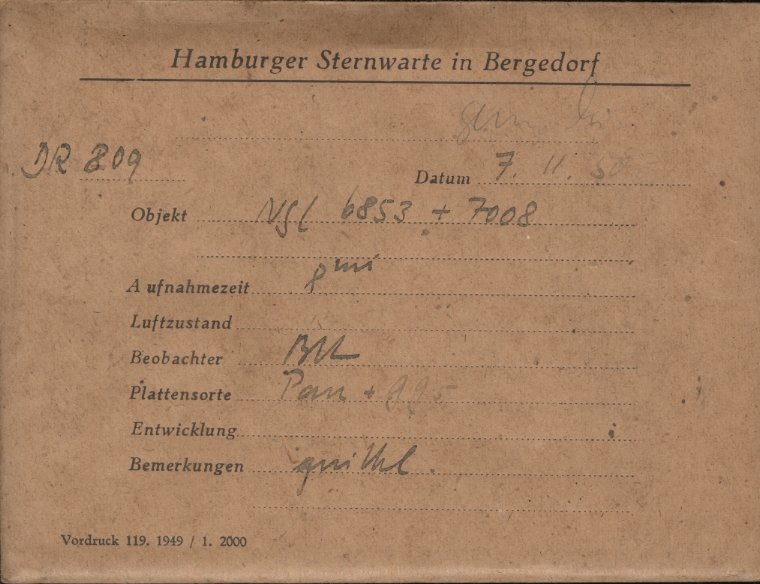 Hamburger Sternwarte in Bergedorf
DR 809
Datum 7. 11. 50
Objekt NGC 6853 + 7008
Aufnahmezeit 8 min
Luftzustand
Beobachter
Plattensorte Pan +
Entwicklung
Bemerkungen
Vordruck 119. 1949 / 1. 2000